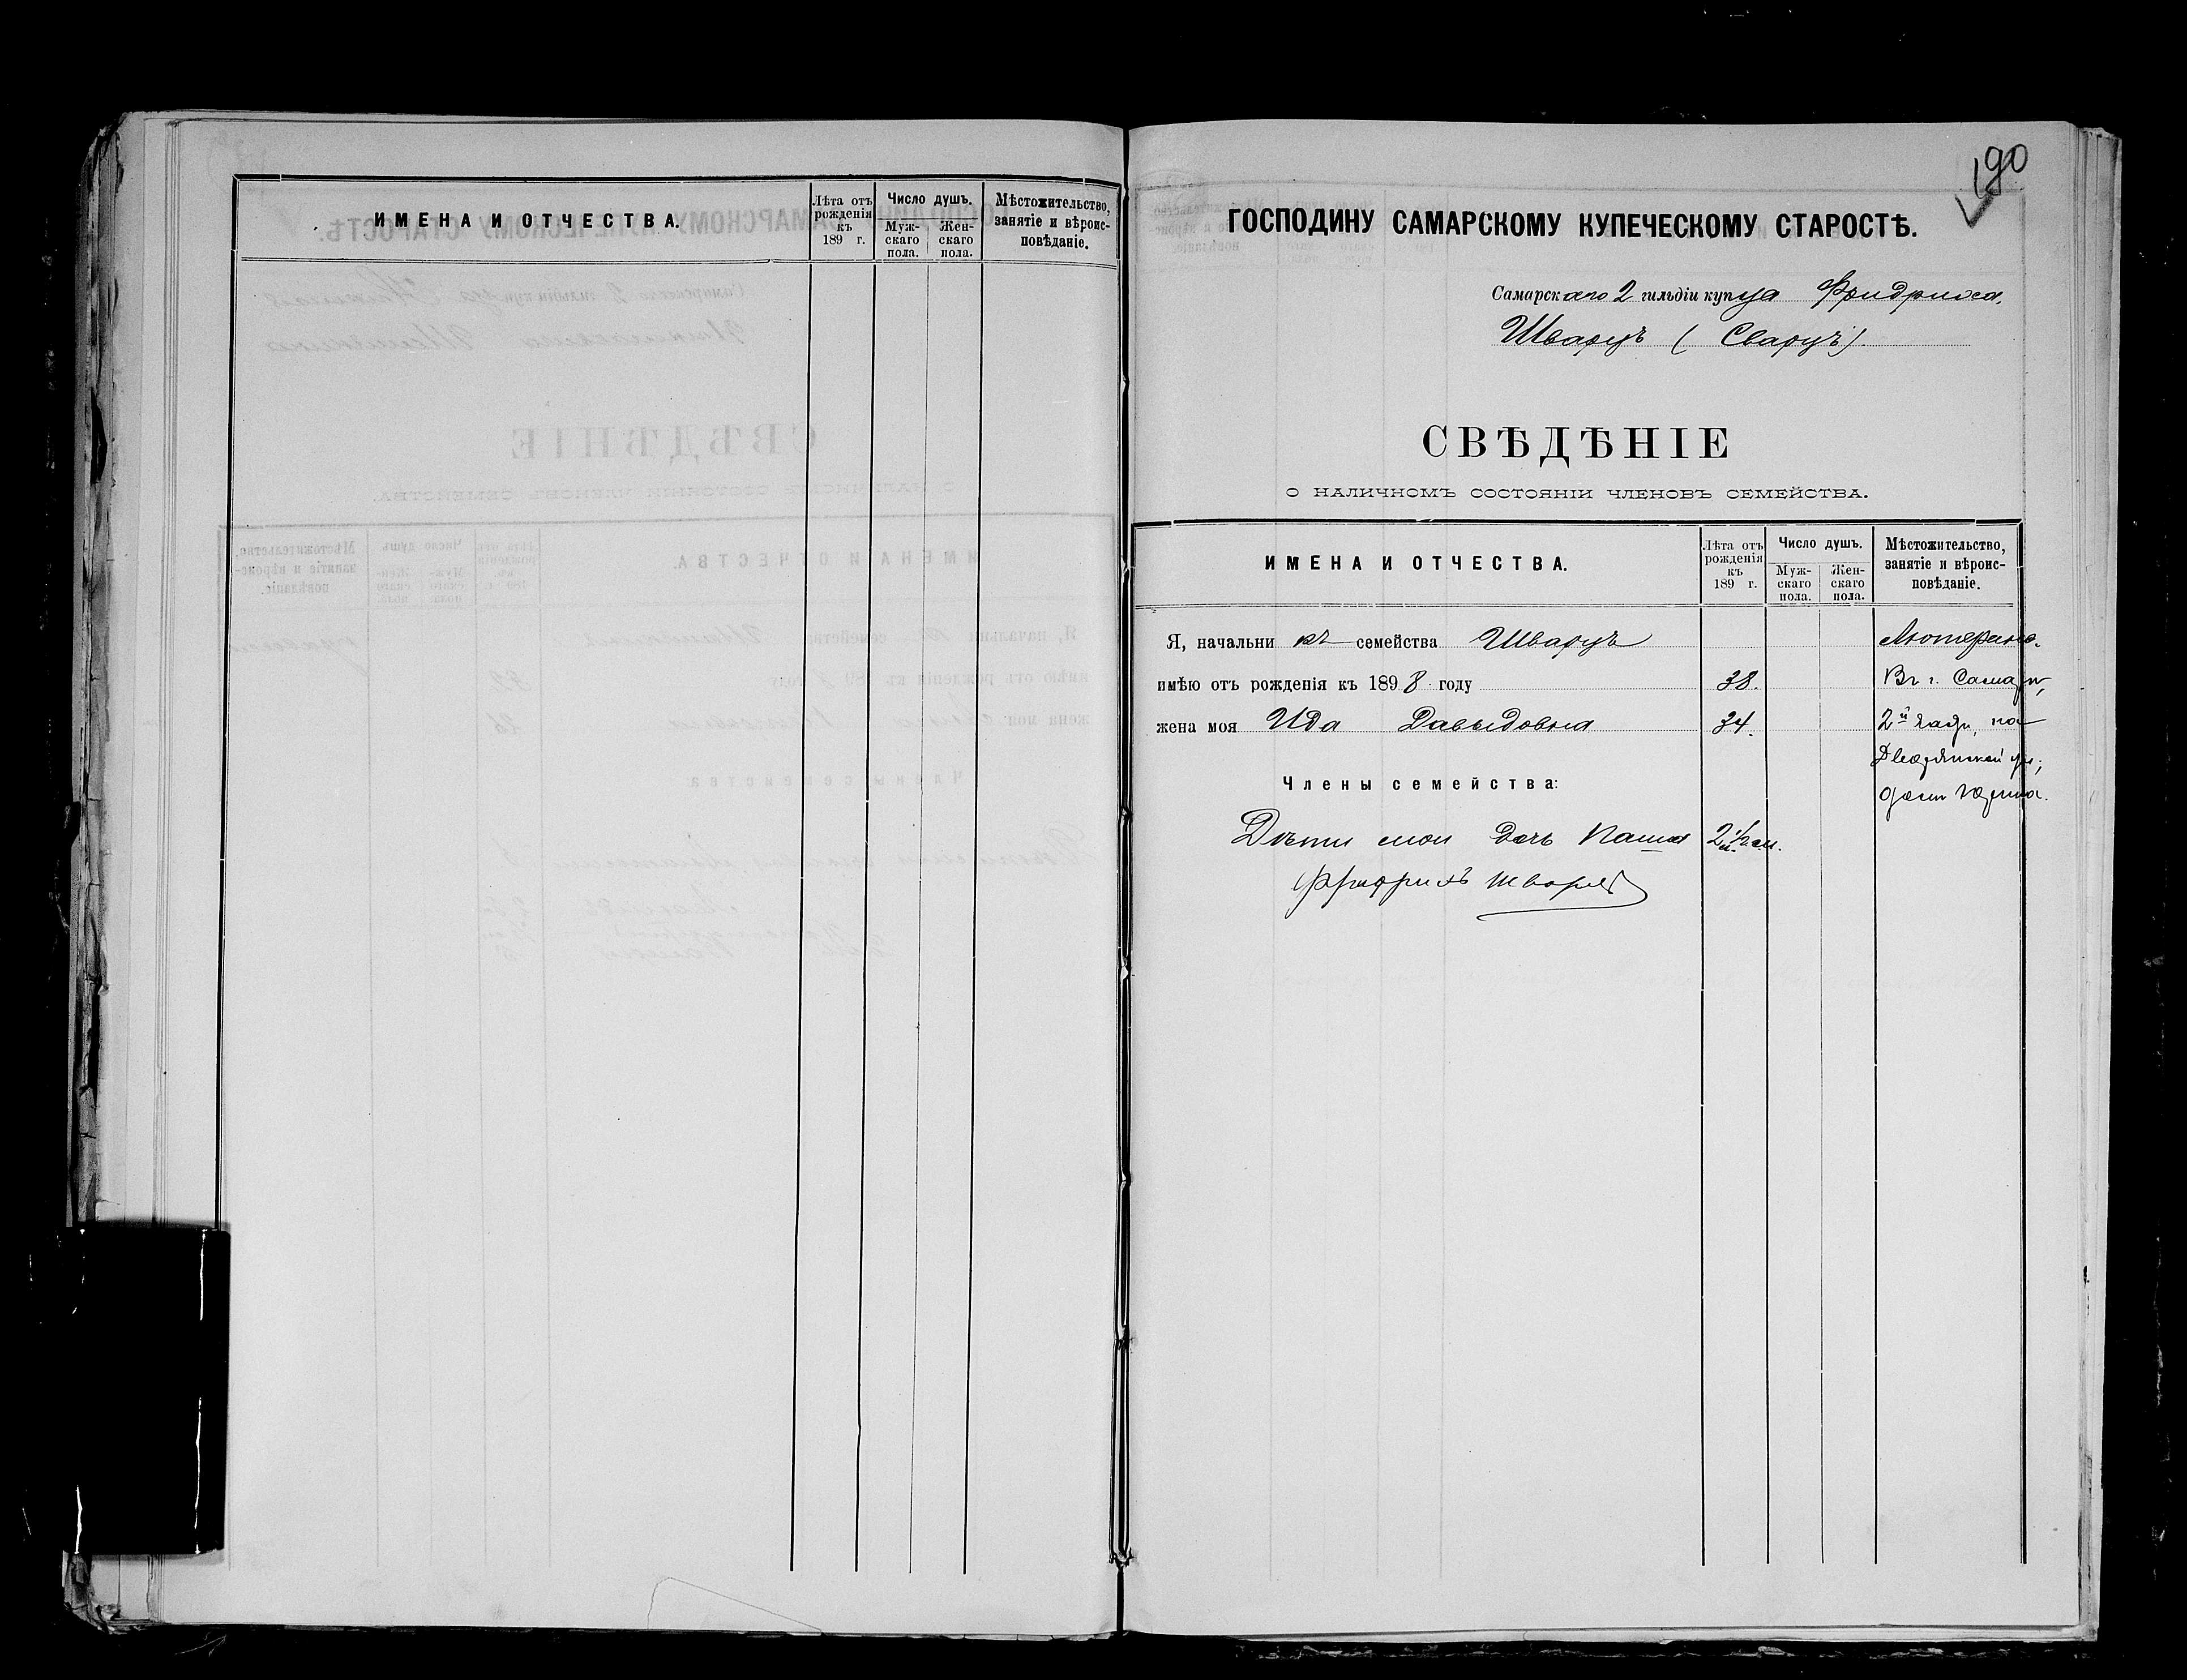 ИМЕНА И ОТЧЕСТВА.
Лѣта отъ рожденія къ 189 г.
Число душъ.
Муж-скаго пола.
Жен-скаго пола.
Мѣстожительство, занятіе и вѣроис-повѣданіе.
190
ГОСПОДИНУ САМАРСКОМУ КУПЕЧЕСКОМУ СТАРОСТѢ.
Самарскаго 2 гильдіи купца Фридриха
Шварцъ (Сварцъ).
СВѢДѢНІЕ
О НАЛИЧНОМЪ СОСТОЯНІИ ЧЛЕНОВЪ СЕМЕЙСТВА.
ИМЕНА И ОТЧЕСТВА.
Лѣта отъ рожденія къ 189 г.
Число душъ.
Муж-скаго пола.
Жен-скаго пола.
Мѣстожительство, занятіе и вѣроис-повѣданіе.
Я, начальникъ семейства Шварцъ
Лютеране.
имѣю отъ рожденія къ 1898 году 38.
Въ г. Самарѣ,
жена моя Ида Давыдовна 34.
2й части, на
Дворянской ул.,
Члены семейства:
Дѣти мои дочь 2 1/2 м.
Фридрихъ Шварцъ